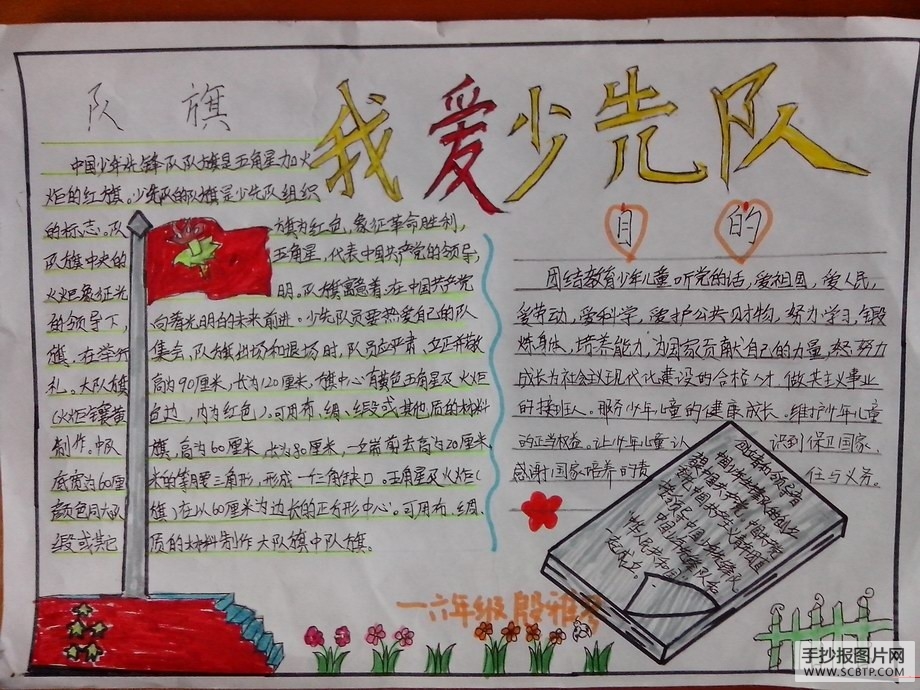 我爱少先队
队 旗
中国少年先锋队队旗是五角星加火
炬的红旗。少先队的队旗是少先队组织
的标志。队旗为红色,象征革命胜利,
队旗中央的五角星,代表中国共产党的领导,
火炬象征光明。队旗寓意着:在中国共产党
的领导下,向着光明的未来前进。少先队员要热爱自己的队
旗,在举行集会,队旗出场和退场时,队员应严肃,立正并敬
礼。大队旗高为90厘米,长为120厘米,旗中心有黄色五角星及火炬
(火炬镶黄色边,内为红色)。可用布、绸、缎或其他质的材料
制作。中队旗,高为60厘米,长为80厘米,一端剪去高为20厘米,
底宽为60厘米的等腰三角形,形成一个三角缺口。五角星及火炬(
颜色同大队旗)在以60厘米为边长的正方形中心。可用布、绸、
缎或其它质的材料制作大队旗中队旗。
目 的
团结教育少年儿童,听党的话,爱祖国,爱人民,
爱劳动,爱科学,爱护公共财物,努力学习,锻
炼身体,培养能力,为国家贡献自己的力量,努力
成长为社会主义现代化建设的合格人才,做共主义事业
的接班人。服务少年儿童的健康成长。维护少年儿童
的正当权益。让少年儿童认识到保卫国家、
感谢国家培养的责任与义务。
创立者和领导者
中国少年先锋队的创立
一六年级 殷雅
手抄报图片网
WWW.SCBTP.COM